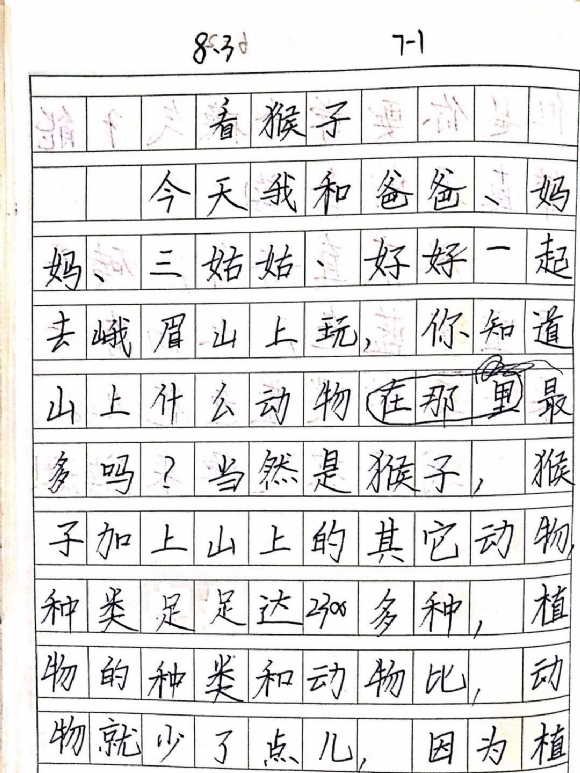 8.36 7-1
看猴子
今天我和爸爸、妈
妈、三姑姑、好好一起
去峨眉山上玩,你知道
山上什么动物在那里最
多吗?当然是猴子,猴
子加上山上的其它动物,
种类足足达2300多种,植
物的种类和动物比,动
物就少了点儿,因为植